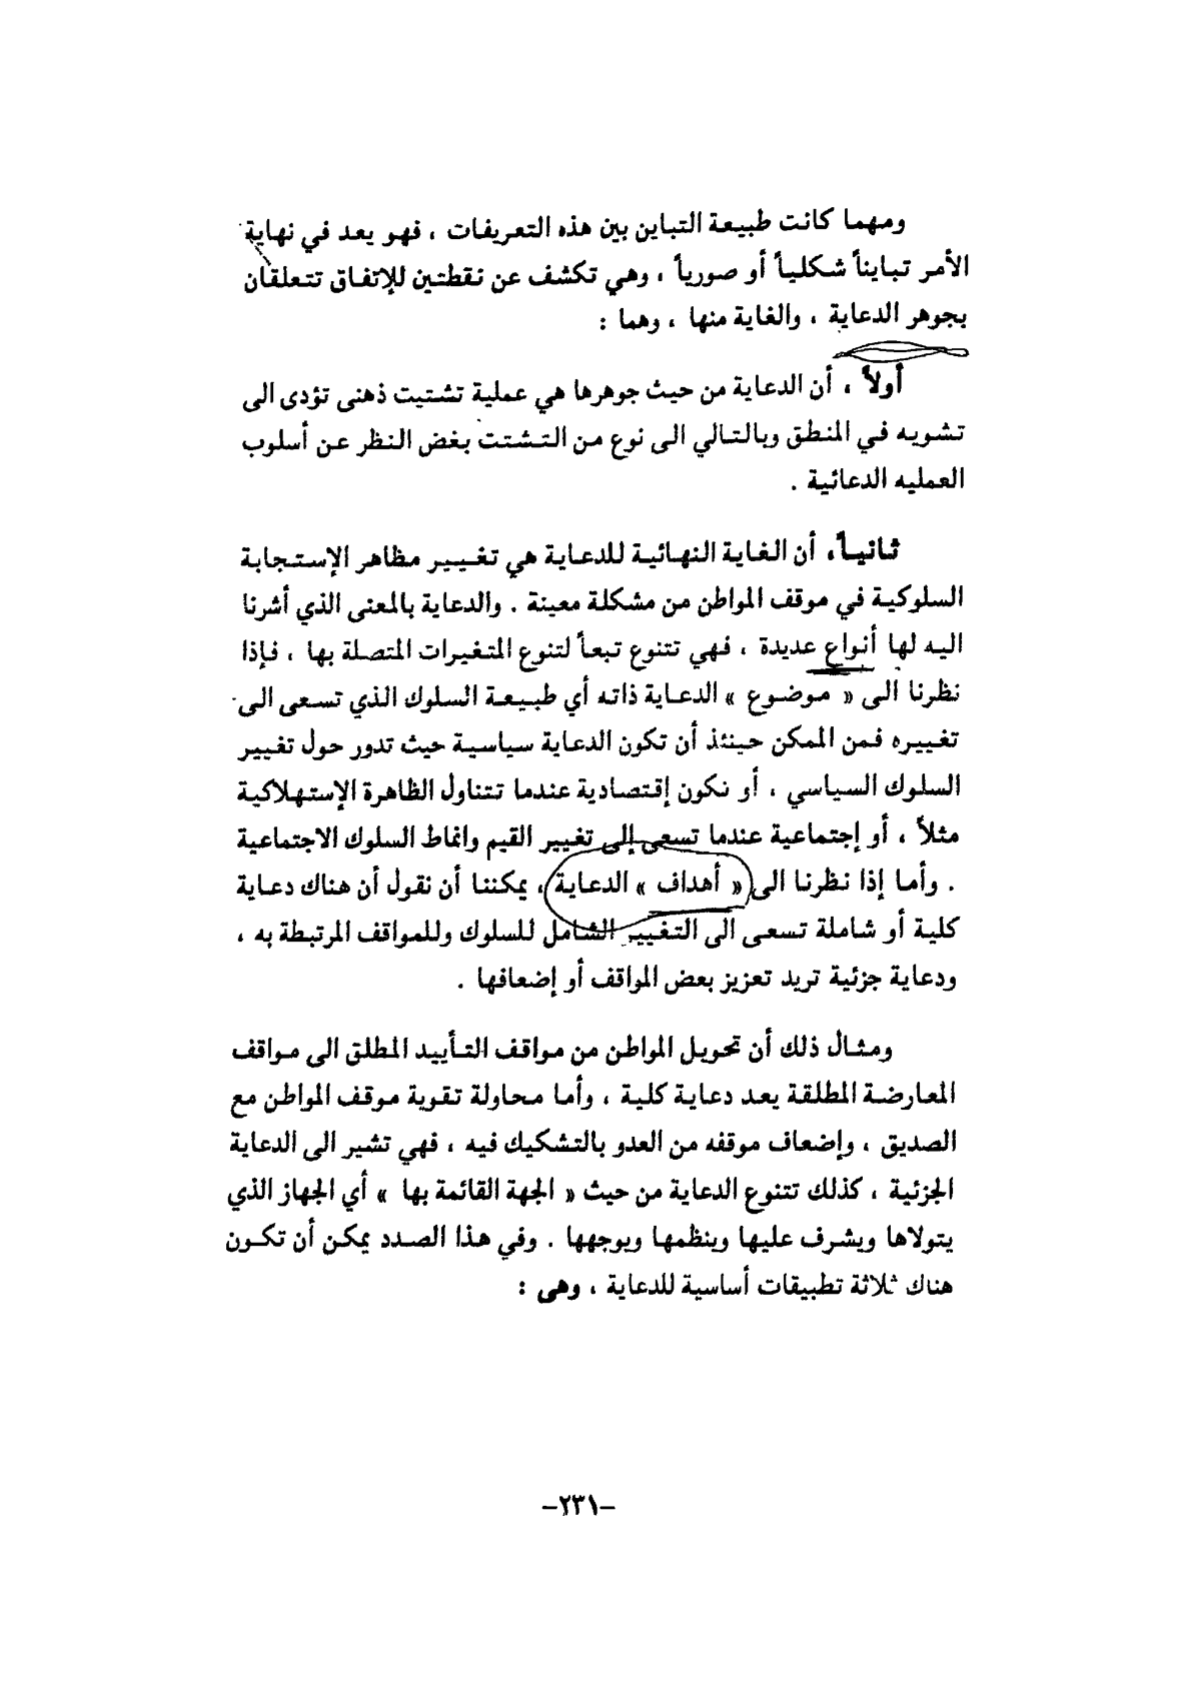 ومهما كانت طبيعة التباين بين هذه التعريفات ، فهو يعد في نهاية
الأمر تبايناً شكلياً أو صورياً ، وهي تكشف عن نقطتين للإتفاق تتعلقان
بجوهر الدعاية ، والغاية منها ، وهما :
أولاً ، أن الدعاية من حيث جوهرها هي عملية تشتيت ذهنى تؤدى الى
تشويه في المنطق وبالتالي الى نوع من التشتت بغض النظر عن أسلوب
العمليه الدعائية .
ثانياً، أن الغاية النهائية للدعاية هي تغيير مظاهر الإستجابة
السلوكية في موقف المواطن من مشكلة معينة . والدعاية بالمعنى الذي أشرنا
اليه لها أنواع عديدة ، فهي تتنوع تبعاً لتنوع المتغيرات المتصلة بها ، فإذا
نظرنا الى « موضوع » الدعاية ذاته أي طبيعة السلوك الذي تسعى الى
تغييره فمن الممكن حينئذ أن تكون الدعاية سياسية حيث تدور حول تغيير
السلوك السياسي ، أو نكون إقتصادية عندما تتناول الظاهرة الإستهلاكية
مثلاً ، أو إجتماعية عندما تسعى إلى تغيير القيم وانماط السلوك الاجتماعية
. وأما إذا نظرنا الى « أهداف » الدعاية ، يمكننا أن نقول أن هناك دعاية
كلية أو شاملة تسعى الى التغيير الشامل للسلوك وللمواقف المرتبطة به ،
ودعاية جزئية تريد تعزيز بعض المواقف أو إضعافها .
ومثال ذلك أن تحويل المواطن من مواقف التأييد المطلق الى مواقف
المعارضة المطلقة يعد دعاية كلية ، وأما محاولة تقوية موقف المواطن مع
الصديق ، وإضعاف موقفه من العدو بالتشكيك فيه ، فهي تشير الى الدعاية
الجزئية ، كذلك تتنوع الدعاية من حيث « الجهة القائمة بها » أي الجهاز الذي
يتولاها ويشرف عليها وينظمها ويوجهها . وفي هذا الصدد يمكن أن تكون
هناك ثلاثة تطبيقات أساسية للدعاية ، وهى :
–٢٣١–